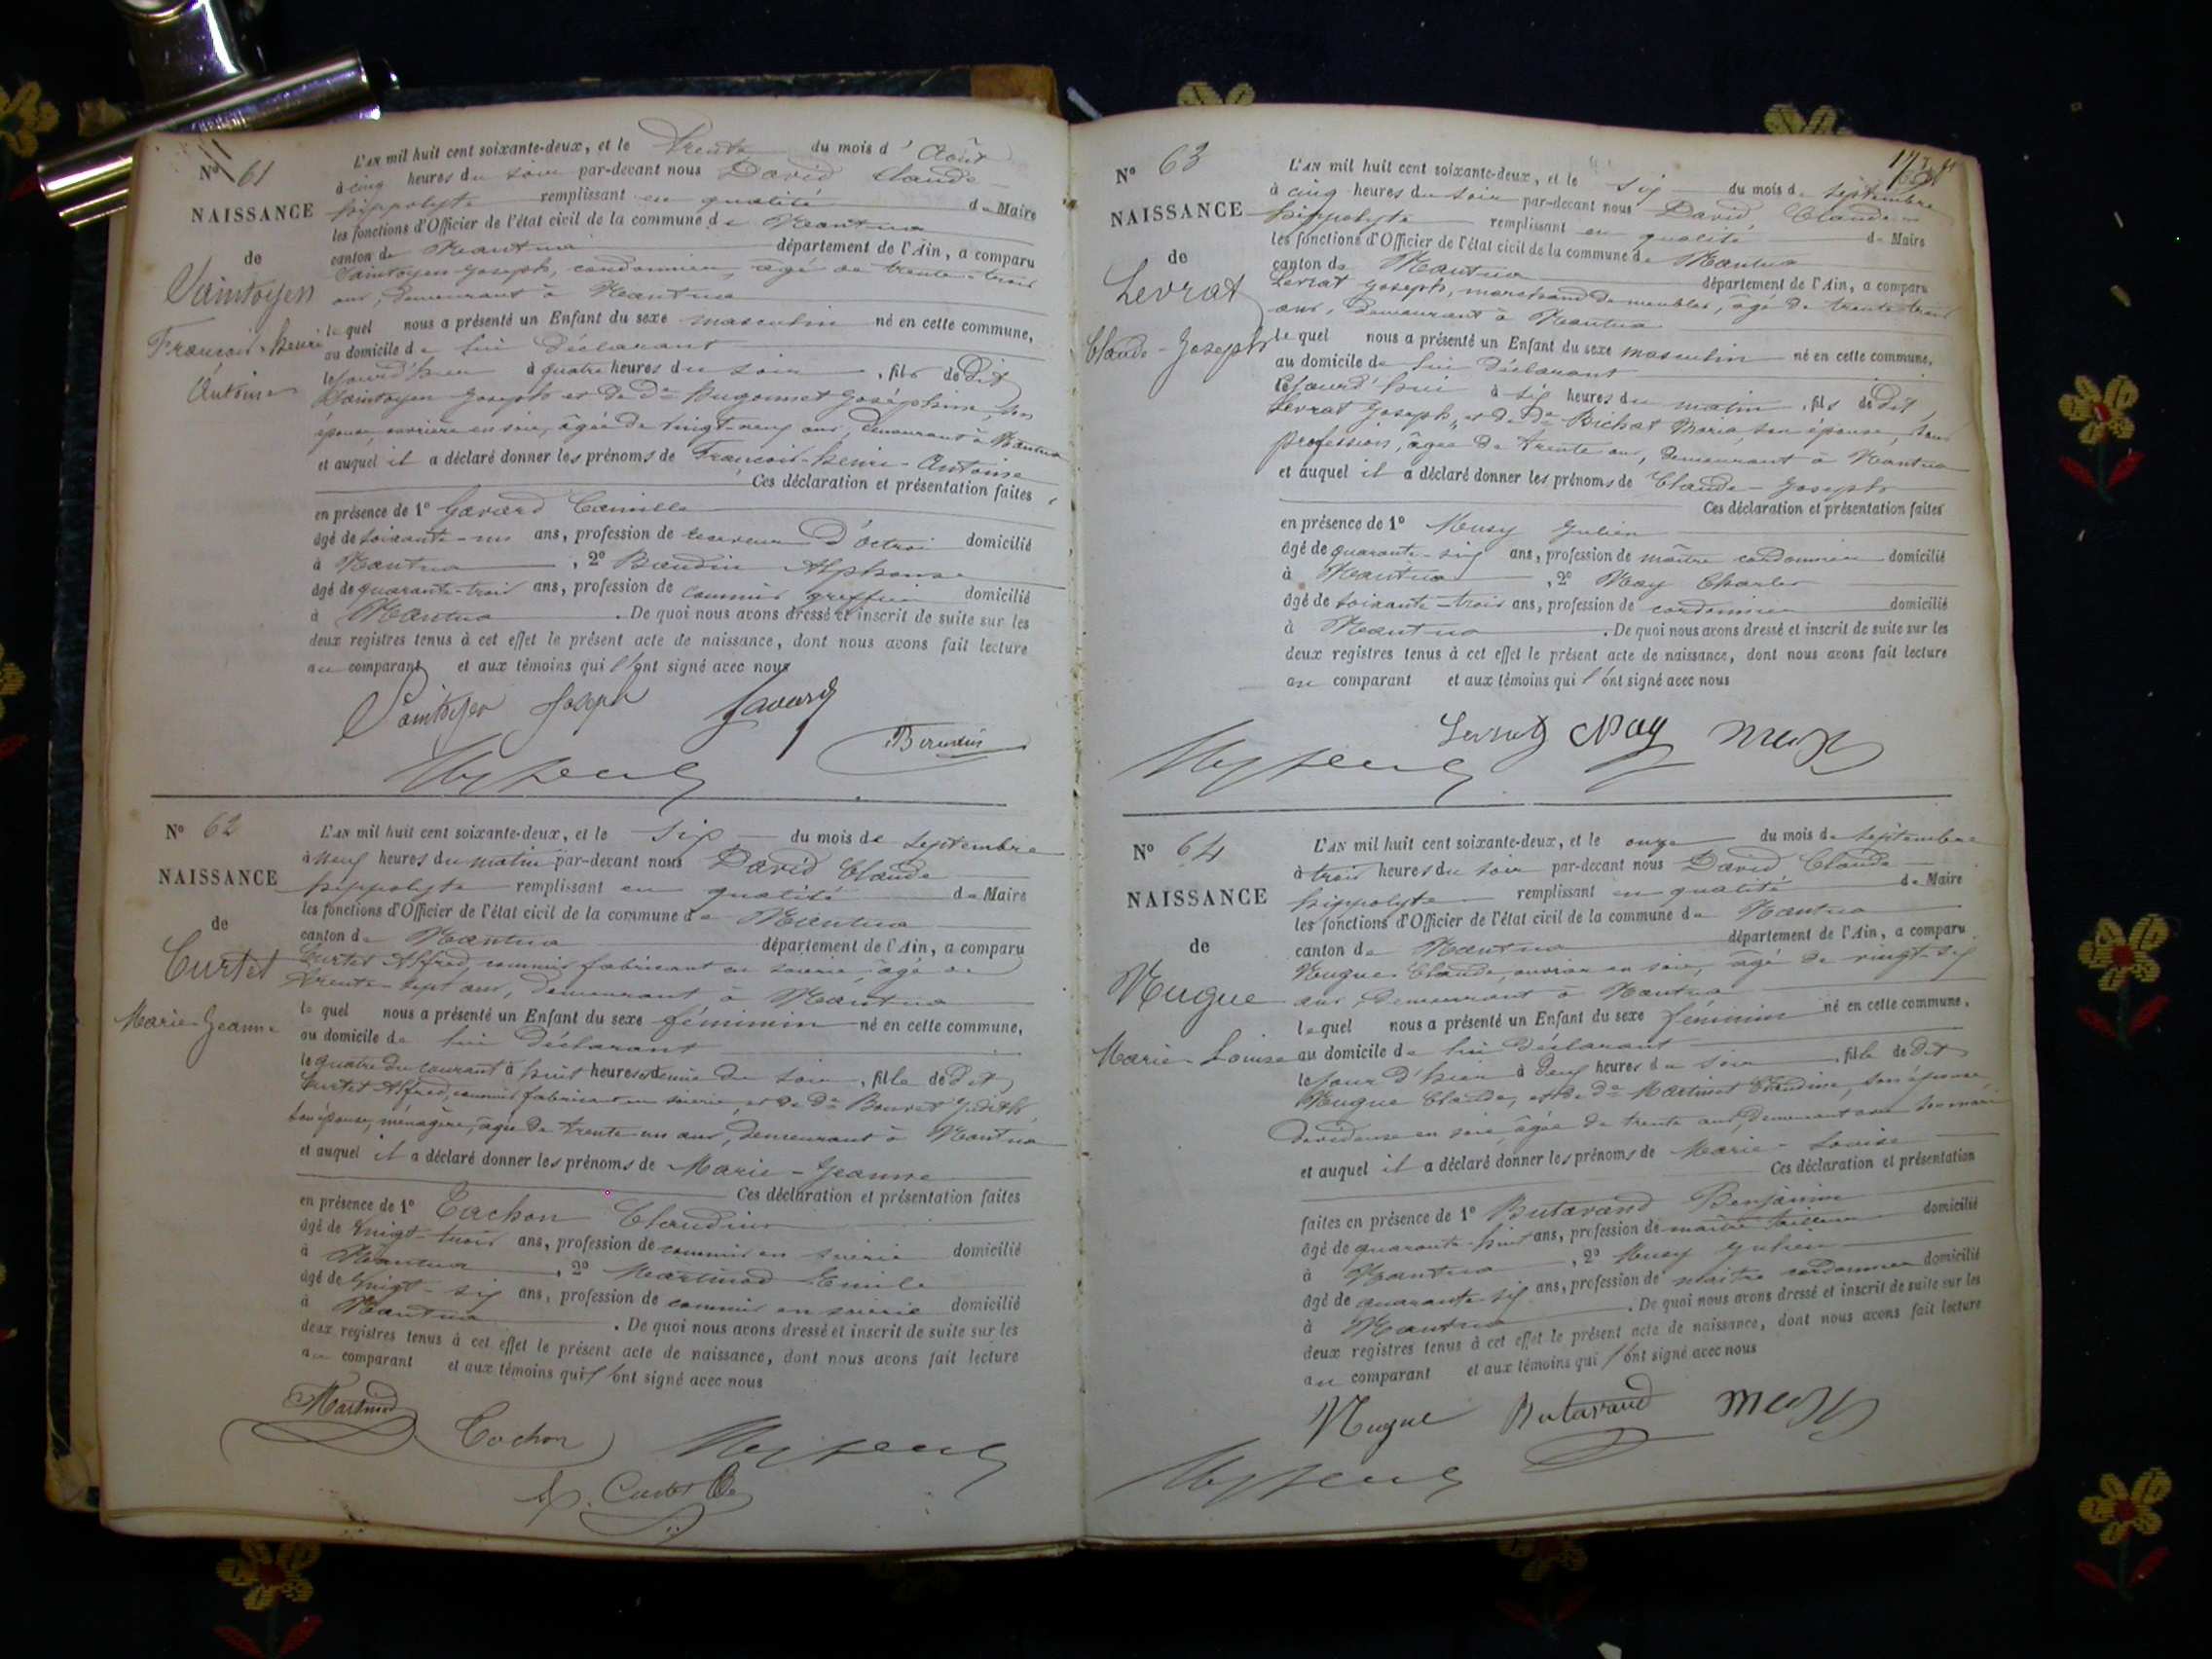 N° 61
NAISSANCE
de
Saintoyen
François-henri
Antoine
L'AN mil huit cent soixante-deux, et le trente du mois d'Août
à cinq heures du soir par-devant nous David Claude
hippolyte remplissant en qualité de Maire
les fonctions d'Officier de l'état civil de la commune de Nantua
canton de Nantua département de l'Ain, a comparu
Saintoyen Joseph, cordonnier, âgé de trente-trois
ans, demeurant à Nantua
lequel nous a présenté un Enfant du sexe masculin né en cette commune,
au domicile de lui déclarant
lejourd'hui à quatre heures du soir, fils de dit
Saintoyen Joseph et de De Hugonnet Joséphine, son
épouse, ouvrière en soie, âgée de vingt-neuf ans, demeurant à Nantua
et auquel il a déclaré donner les prénoms de François-henri-Antoine
Ces déclaration et présentation faites
en présence de 1° Gavard Camille
âgé de soixante-un ans, profession de receveur d'octroi domicilié
à Nantua, 2° Baudin Alphonse
âgé de quarante-trois ans, profession de commis greffier domicilié
à Nantua. De quoi nous avons dressé et inscrit de suite sur les
deux registres tenus à cet effet le présent acte de naissance, dont nous avons fait lecture
au comparant et aux témoins qui l'ont signé avec nous
Saintoyen Joseph Gavard
N° 62
NAISSANCE
de
Curtet
Marie-Jeanne
L'AN mil huit cent soixante-deux, et le six du mois de septembre
à neuf heures du matin par-devant nous David Claude
hippolyte remplissant en qualité de Maire
les fonctions d'Officier de l'état civil de la commune de Nantua
canton de Nantua département de l'Ain, a comparu
Curtet Alfred, commis fabricant en soierie âgé de
trente-sept ans, demeurant à Nantua
lequel nous a présenté un Enfant du sexe féminin né en cette commune,
au domicile de lui déclarant
le quatre du courant à huit heures et demie du soir, fille de dit
Curtet Alfred, commis fabricant en soierie, et de De Bouvet Judith
son épouse, ménagère, âgée de trente-un ans, demeurant à Nantua
et auquel il a déclaré donner les prénoms de Marie-Jeanne
Ces déclaration et présentation faites
en présence de 1° Cochon Claudius
âgé de vingt-trois ans, profession de commis en soierie domicilié
à Nantua, 2° Martinod Emile
âgé de vingt-six ans, profession de commis en soierie domicilié
à Nantua. De quoi nous avons dressé et inscrit de suite sur les
deux registres tenus à cet effet le présent acte de naissance, dont nous avons fait lecture
au comparant et aux témoins qui l'ont signé avec nous
Martinod
Cochon
A. Curtet
N° 63
NAISSANCE
de
Levrat
Claude-Joseph
L'AN mil huit cent soixante-deux, et le six du mois de septembre
à cinq heures du soir par-devant nous David Claude
hippolyte remplissant en qualité de Maire
les fonctions d'Officier de l'état civil de la commune de Nantua
canton de Nantua département de l'Ain, a comparu
Levrat Joseph, marchand de meubles, âgé de trente-trois
ans, demeurant à Nantua
lequel nous a présenté un Enfant du sexe masculin né en cette commune,
au domicile de lui déclarant
lejourd'hui à six heures du matin, fils de dit
Levrat Joseph, et de De Bichat Maria, son épouse, sans
profession, âgée de trente ans, demeurant à Nantua
et auquel il a déclaré donner les prénoms de Claude-Joseph
Ces déclaration et présentation faites
en présence de 1° Musy Julien
âgé de quarante-six ans, profession de maître cordonnier domicilié
à Nantua, 2° May Charles
âgé de soixante-trois ans, profession de cordonnier domicilié
à Nantua. De quoi nous avons dressé et inscrit de suite sur les
deux registres tenus à cet effet le présent acte de naissance, dont nous avons fait lecture
au comparant et aux témoins qui l'ont signé avec nous
Levrat May Musy
N° 64
NAISSANCE
de
Nugue
Marie-Louise
L'AN mil huit cent soixante-deux, et le onze du mois de septembre
à trois heures du soir par-devant nous David Claude
hippolyte remplissant en qualité de Maire
les fonctions d'Officier de l'état civil de la commune de Nantua
canton de Nantua département de l'Ain, a comparu
Nugue Claude, ouvrier en soie, âgé de vingt-six
ans, demeurant à Nantua
lequel nous a présenté un Enfant du sexe féminin né en cette commune,
au domicile de lui déclarant
lejour d'hier à deux heures du soir, fille de dit
Nugue Claude, et de De Martinet Claudine, son épouse
dévideuse en soie âgée de trente ans, demeurant avec son mari
et auquel il a déclaré donner les prénoms de Marie-Louise
Ces déclaration et présentation
faites en présence de 1° Butavand Benjamin
âgé de quarante-huit ans, profession de maître tailleur domicilié
à Nantua, 2° Musy Julien
âgé de quarante-six ans, profession de maître cordonnier domicilié
à Nantua. De quoi nous avons dressé et inscrit de suite sur les
deux registres tenus à cet effet le présent acte de naissance, dont nous avons fait lecture
au comparant et aux témoins qui l'ont signé avec nous
Nugue Butavand Musy